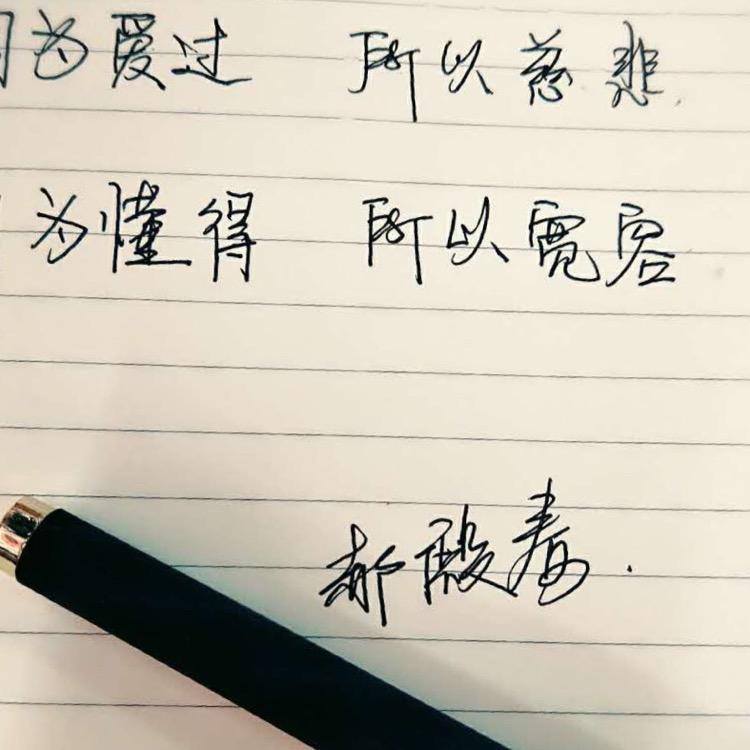 因为爱过 所以慈悲
为懂得 所以宽容